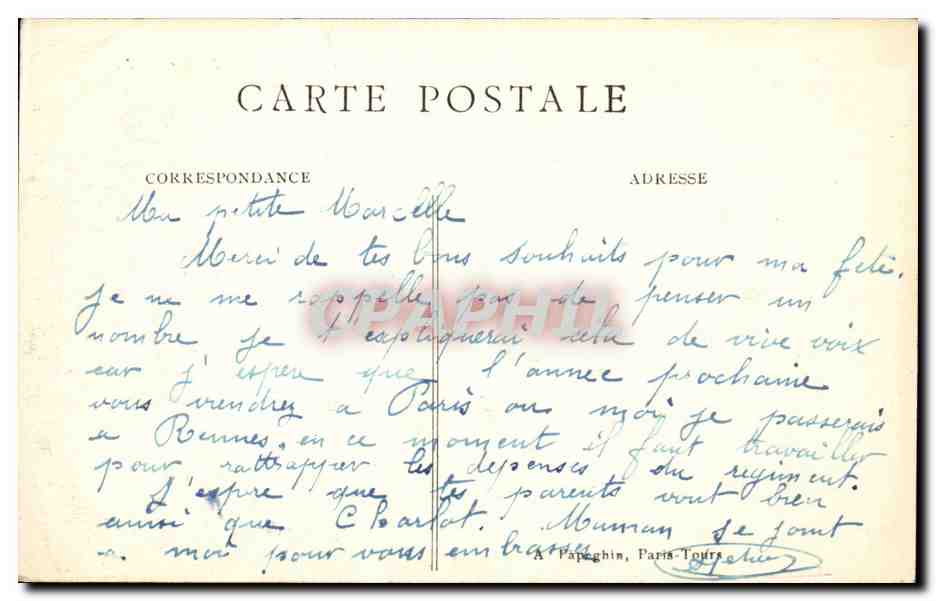 CARTE POSTALE
CORRESPONDANCE ADRESSE
Ma petite Marcelle
Merci de tes bons souhaits pour ma fete.
je ne me rappelle pas de penser un
nombre je t'expliquerai cela de vive voix
car j'espere que l'annee prochaine
vous viendrez a Paris ou moi je passerais
a Rennes. en ce moment il faut travailler
pour rattrapper les depenses du regiment.
J'espere que tes parents vont bien
ainsi que Charlot. Maman se joint
a moi pour vous embrasser
A Papeghin, Paris-Tours
CPAPHIL